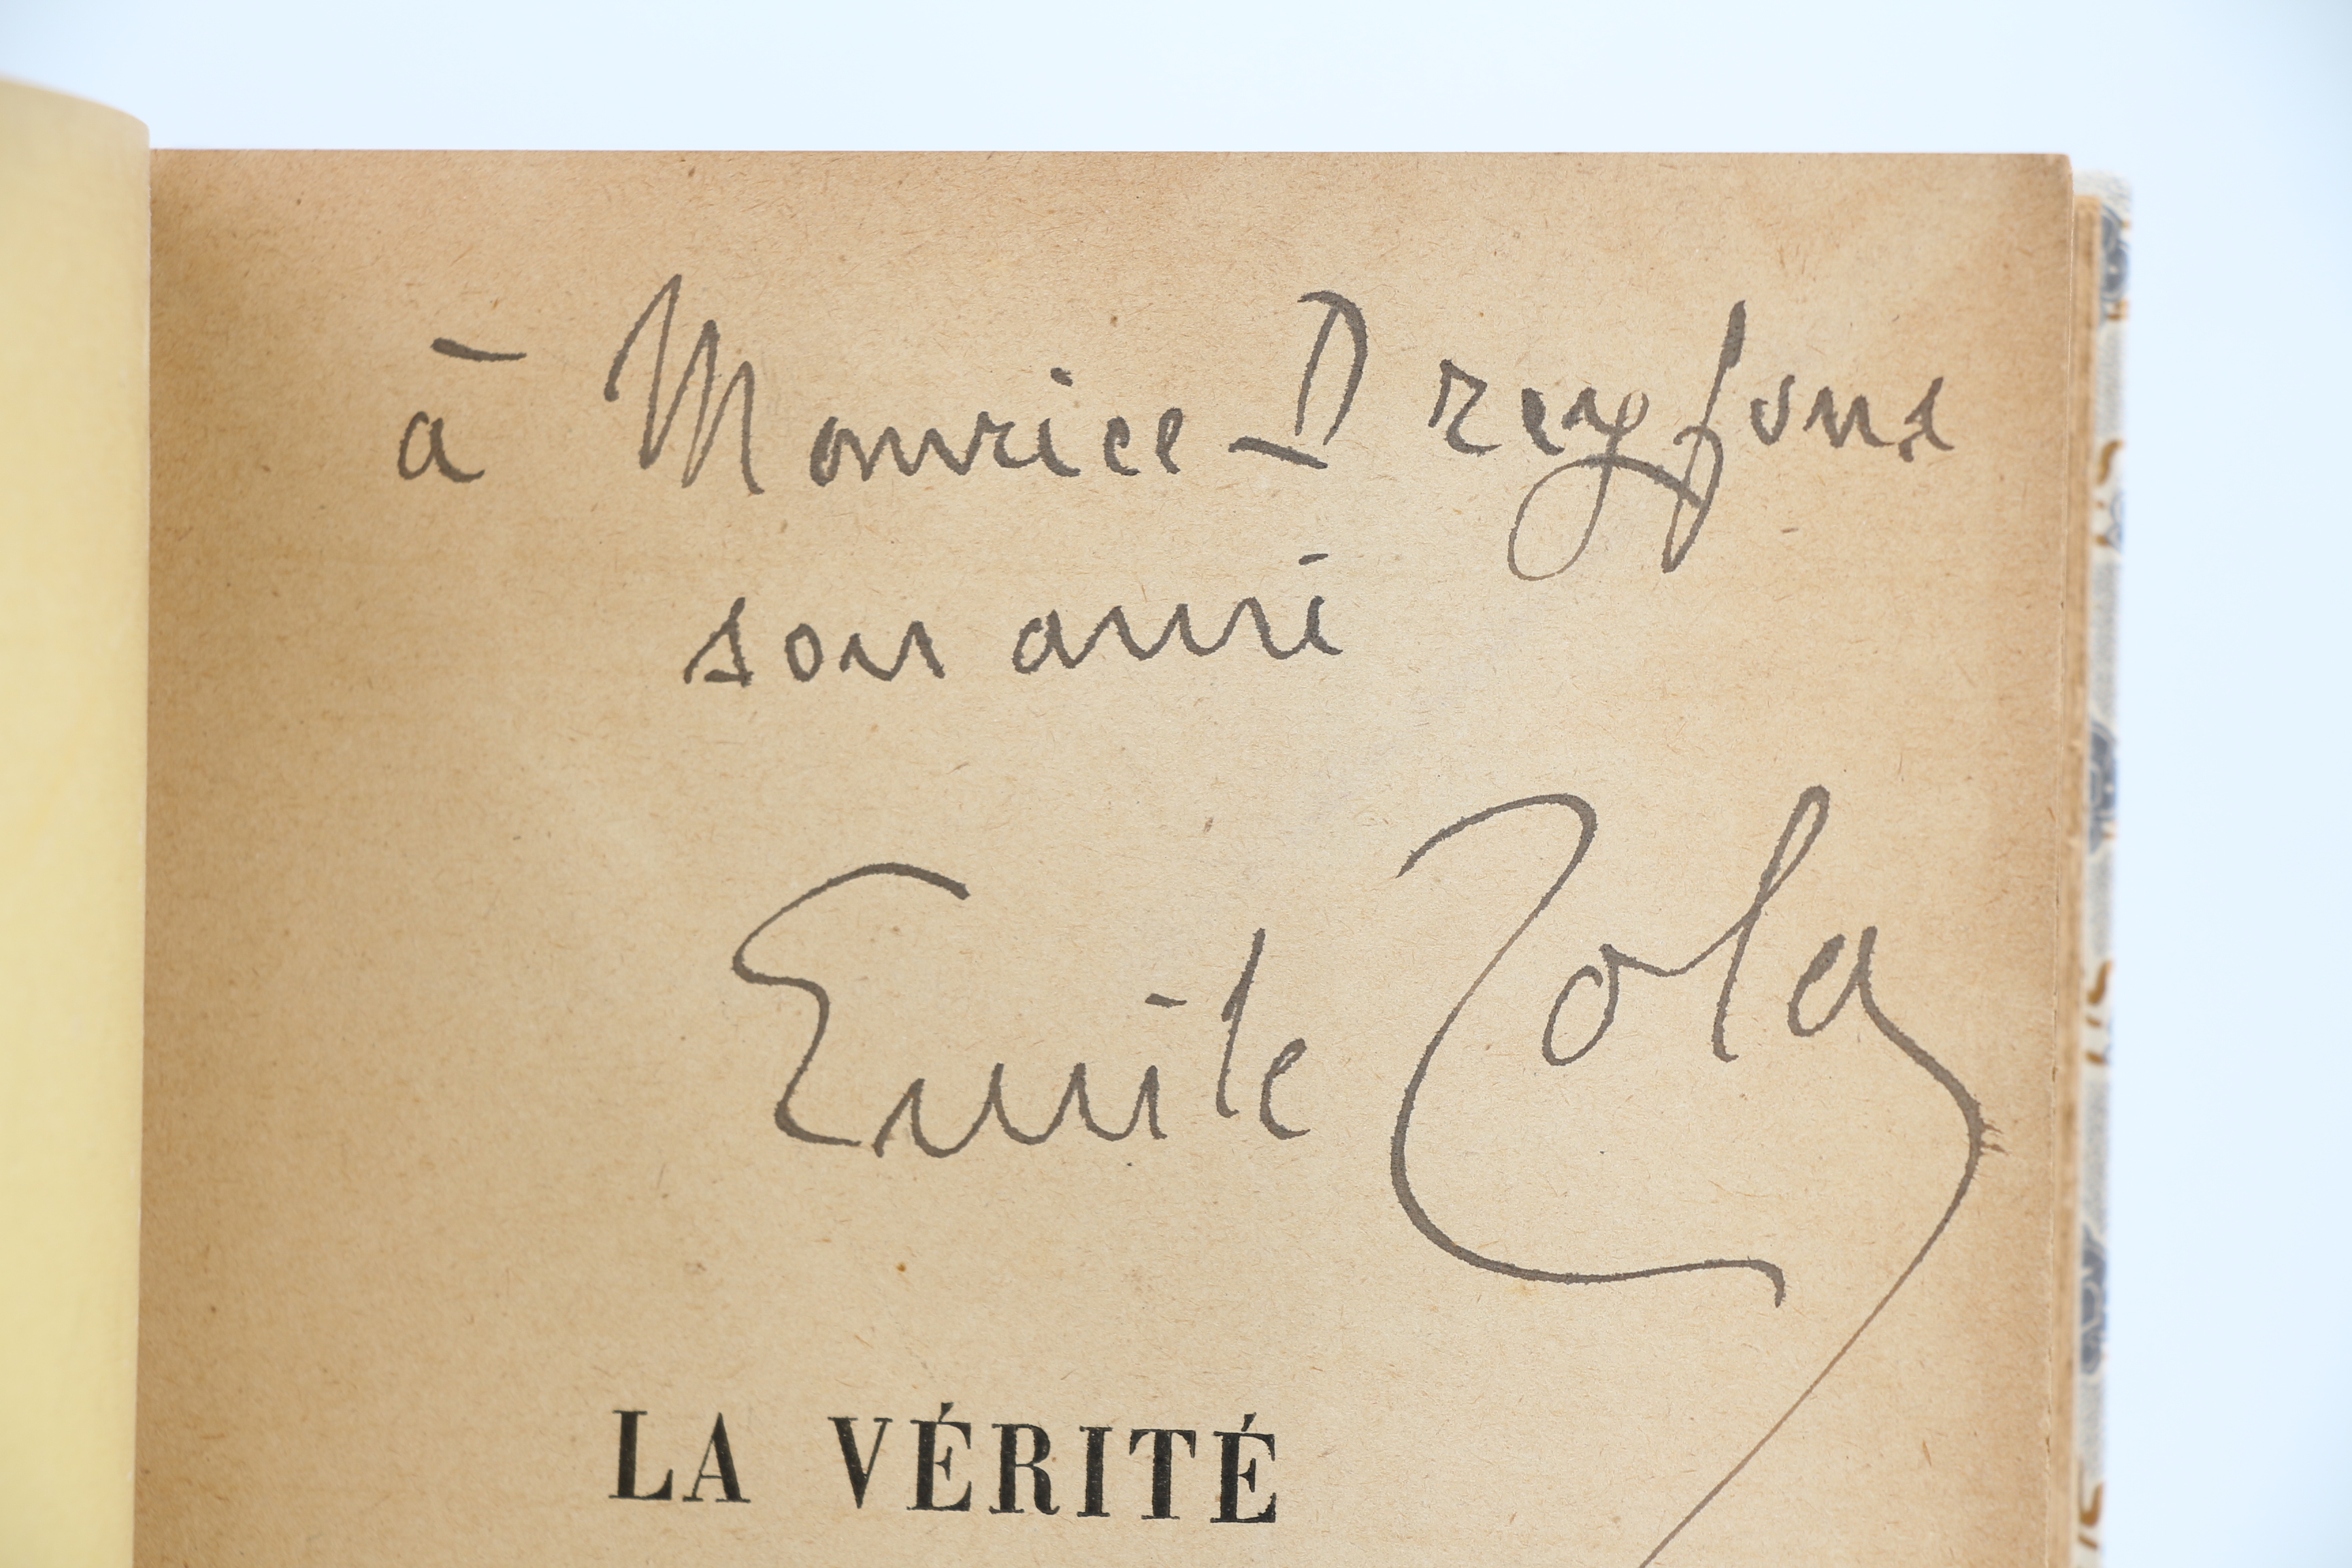 à Maurice Dreyfous
son ami
Emile Zola
LA VÉRITÉ